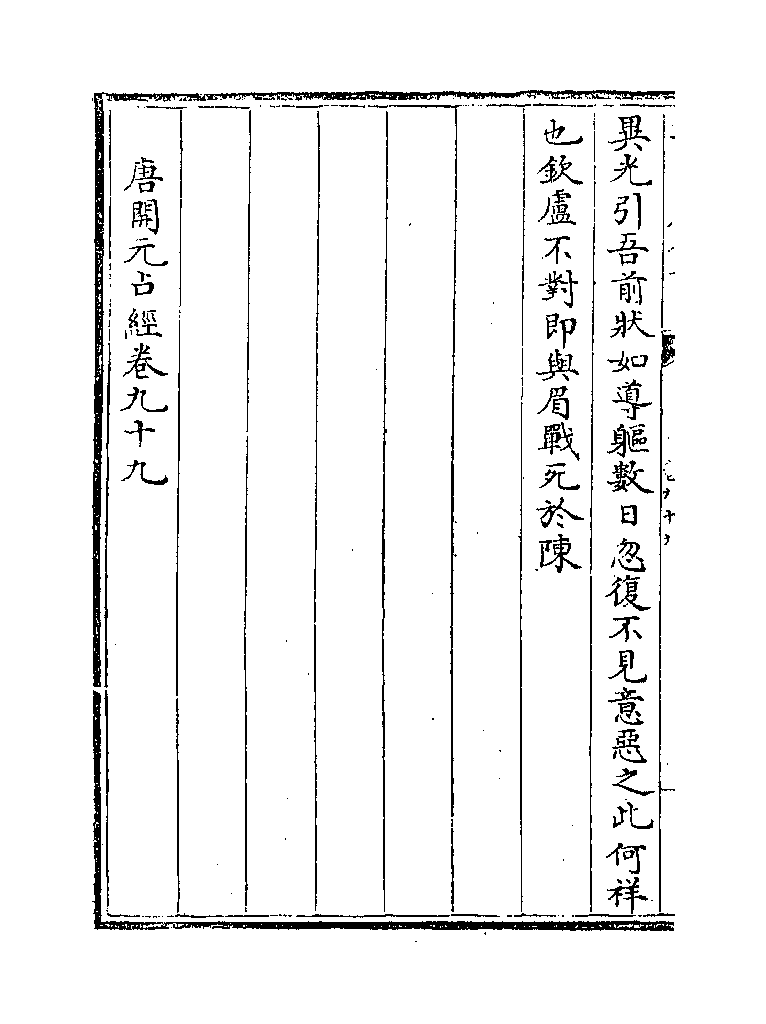 異光引吾前狀如導軀數日忽復不見意惡之此何祥
也欽盧不對即與眉戰死於陳
唐開元占經卷九十九